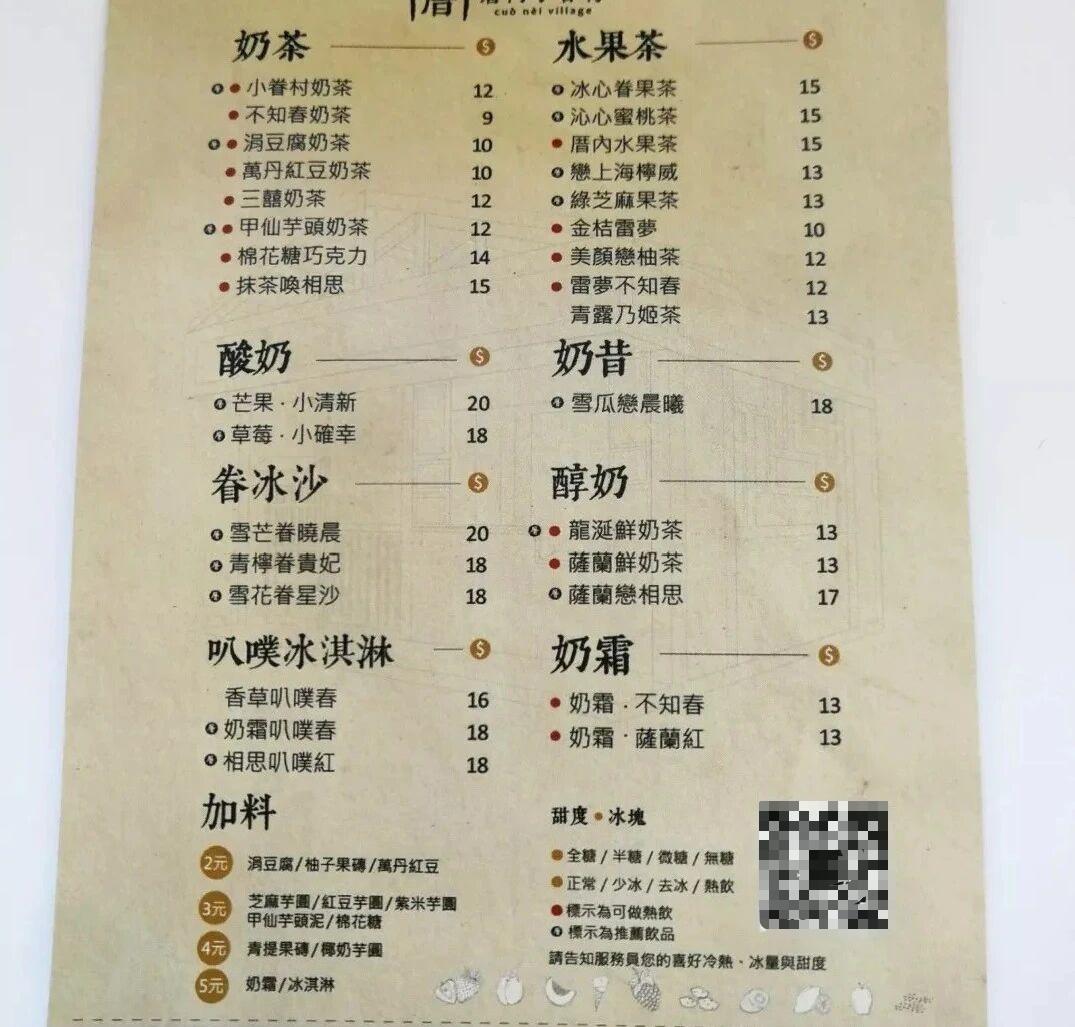 厝
cuò nèi village
奶茶 $
小眷村奶茶 12
不知春奶茶 9
涓豆腐奶茶 10
萬丹紅豆奶茶 10
三囍奶茶 12
甲仙芋頭奶茶 12
棉花糖巧克力 14
抹茶喚相思 15
水果茶 $
冰心眷果茶 15
沁心蜜桃茶 15
厝內水果茶 15
戀上海檸威 13
綠芝麻果茶 13
金桔雷夢 10
美顏戀柚茶 12
雷夢不知春 12
青露乃姬茶 13
酸奶 $
芒果·小清新 20
草莓·小確幸 18
奶昔 $
雪瓜戀晨曦 18
眷冰沙 $
雪芒眷曉晨 20
青檸眷貴妃 18
雪花眷星沙 18
醇奶 $
龍涎鮮奶茶 13
薩蘭鮮奶茶 13
薩蘭戀相思 17
叭噗冰淇淋 $
香草叭噗春 16
奶霜叭噗春 18
相思叭噗紅 18
奶霜 $
奶霜·不知春 13
奶霜·薩蘭紅 13
加料
2元 涓豆腐/柚子果磚/萬丹紅豆
3元 芝麻芋圓/紅豆芋圓/紫米芋圓
甲仙芋頭泥/棉花糖
4元 青提果磚/椰奶芋圓
5元 奶霜/冰淇淋
甜度•冰塊
全糖/半糖/微糖/無糖
正常/少冰/去冰/熱飲
標示為可做熱飲
標示為推薦飲品
請告知服務員您的喜好冷熱、冰量與甜度